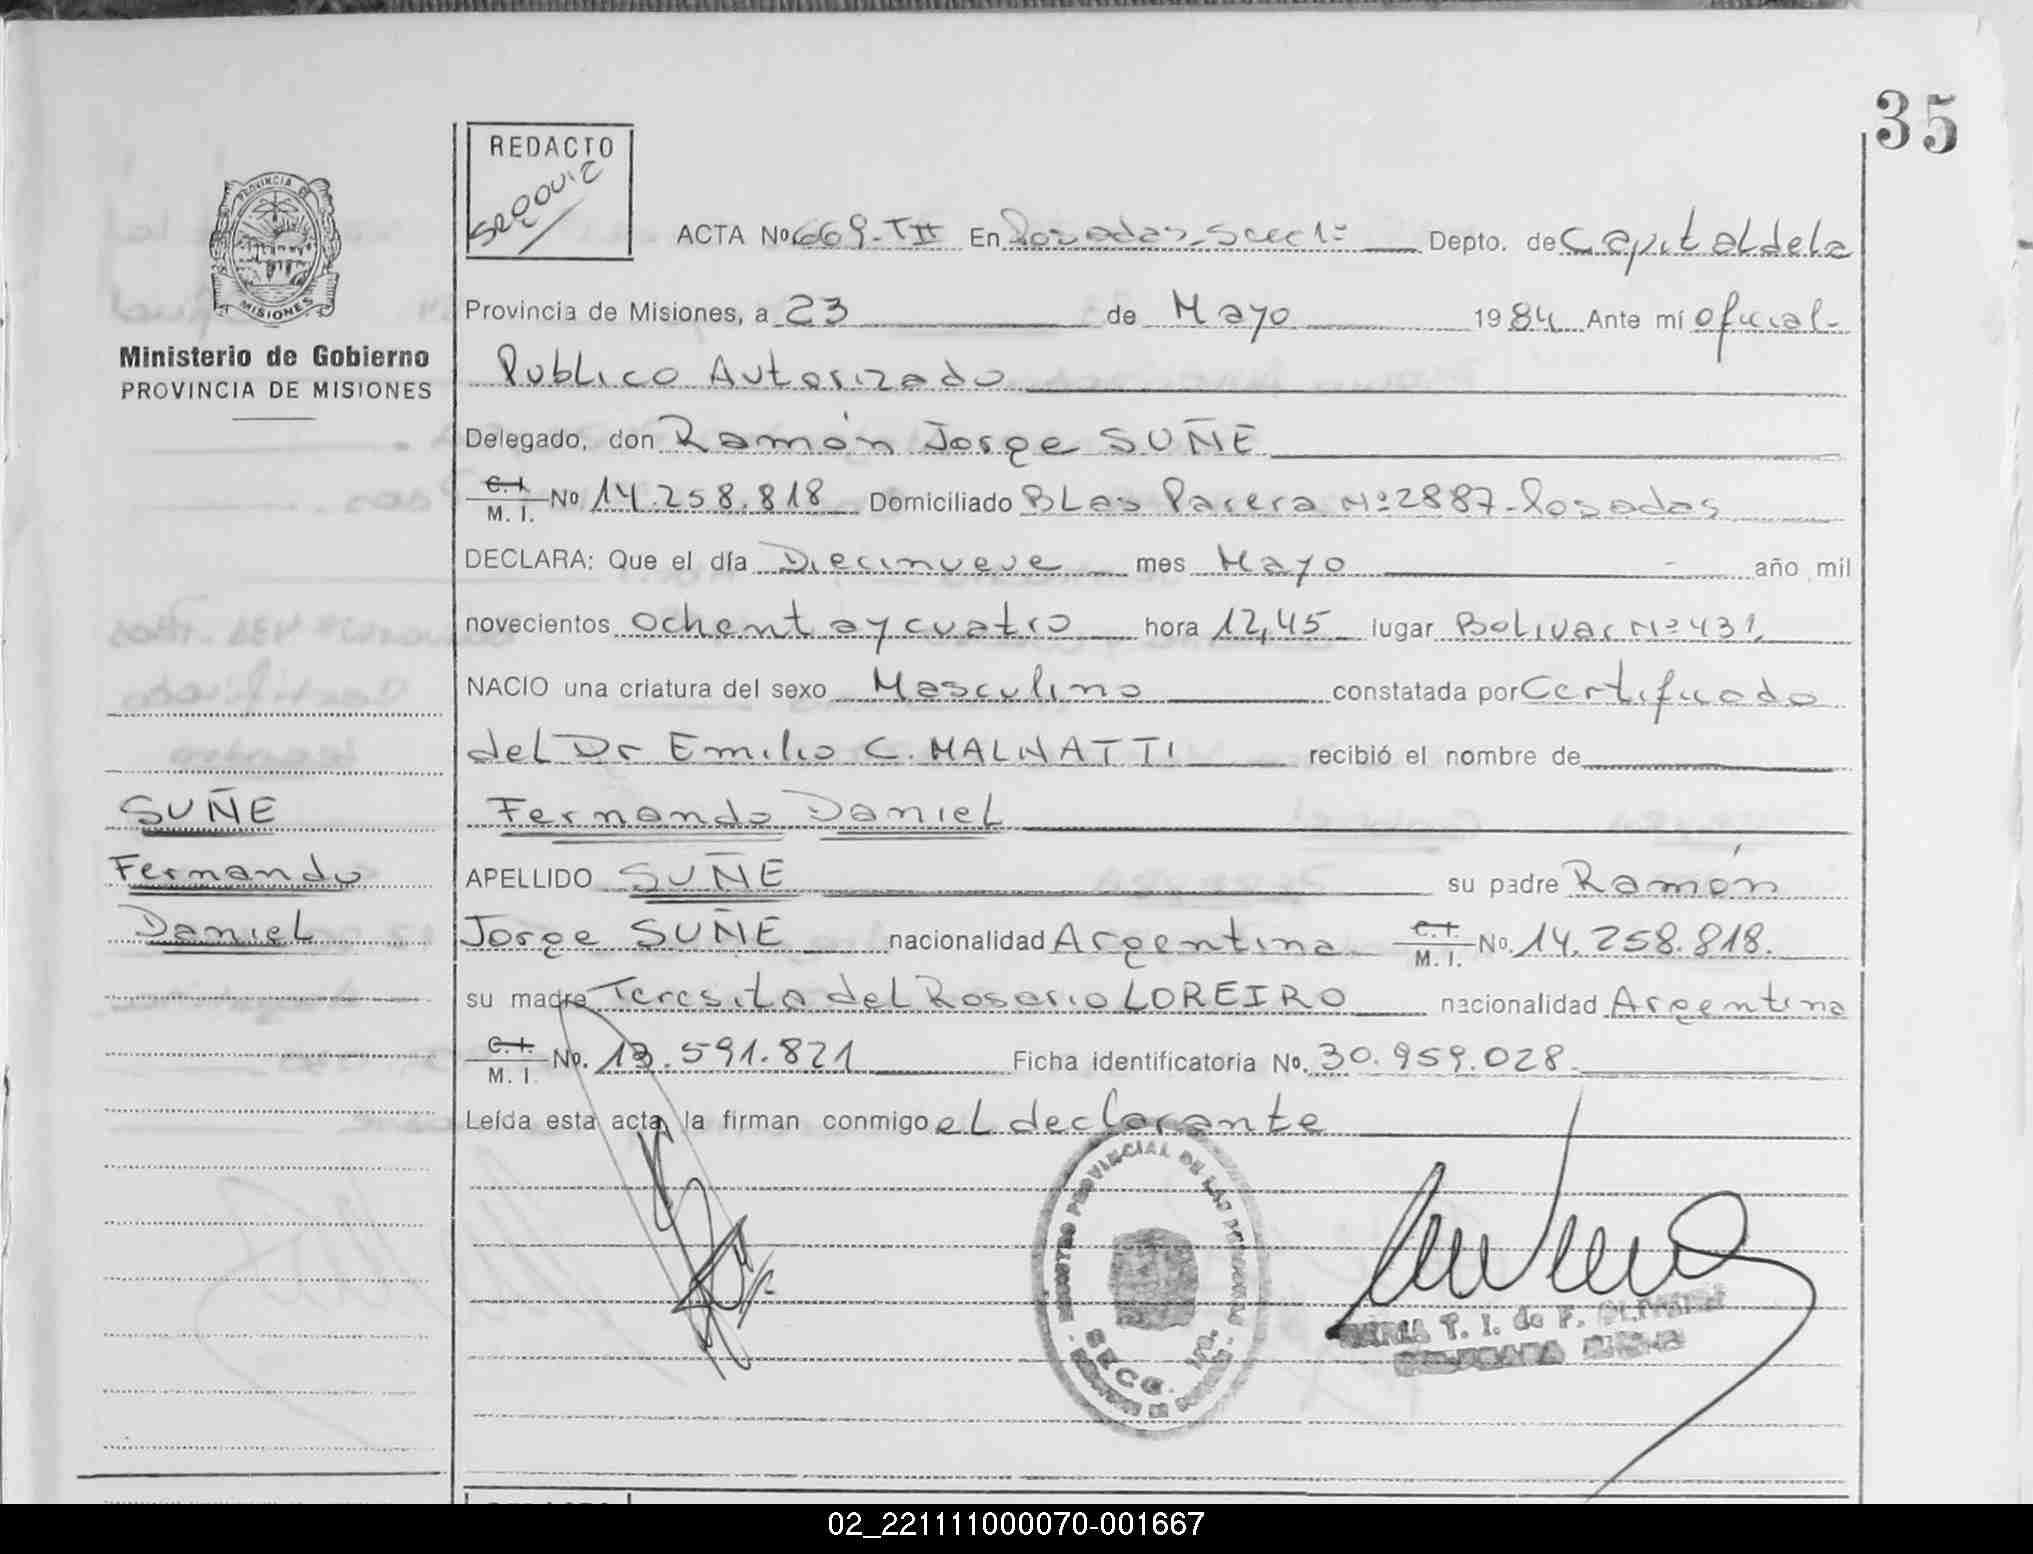 35
REDACTO
Segovia
PROVINCIA DE
MISIONES
Ministerio de Gobierno
PROVINCIA DE MISIONES
ACTA Nº 669-TII En Posadas-Secc 1ª Depto. de Capital de la
Provincia de Misiones, a 23 de Mayo 1984 Ante mí oficial-
Publico Autorizado
Delegado, don Ramón Jorge SUÑE
C.I. M. I. Nº 14.258.818 Domiciliado BLas Parera Nº 2887-Posadas
DECLARA: Que el día Diecinueve mes Mayo año mil
novecientos ochenta y cuatro hora 12,45 lugar Bolivar Nº 431,
NACIO una criatura del sexo Masculino constatada por Certificado
del Dr Emilio C. MALNATTI recibió el nombre de
Fernando Daniel
APELLIDO SUÑE su padre Ramón
Jorge SUÑE nacionalidad Argentina C.I. M. I. No. 14.258.818.
su madre Teresita del Rosario LOREIRO nacionalidad Argentina
C.I. M. I. No. 13.591.821 Ficha identificatoria No. 30.959.028.
Leída esta acta, la firman conmigo el declarante
SUÑE
Fernando
Daniel
REGISTRO PROVINCIAL DE LAS PERSONAS
SECC. 1ra.
T. I. de F.
02_221111000070-001667